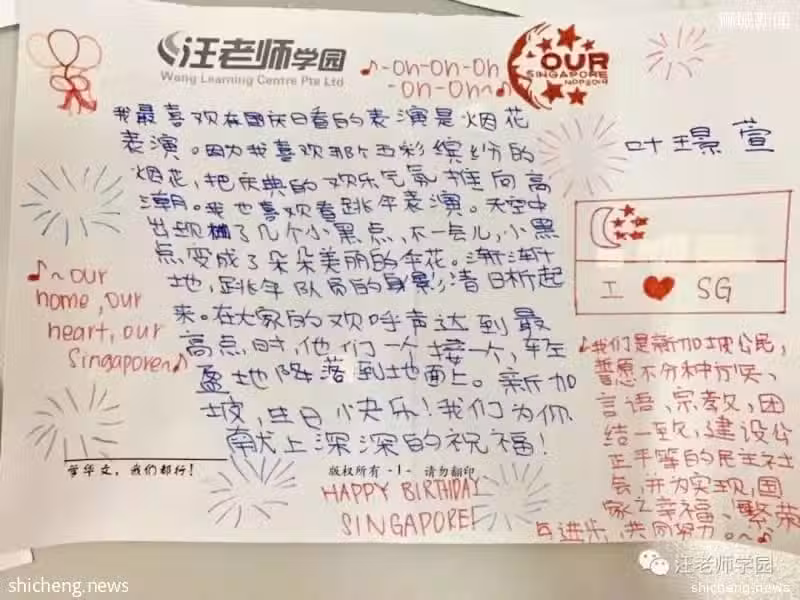 狮城新闻
汪老师学园
Wang Learning Centre Pte Ltd
♪-Oh-Oh-Oh
-Oh-Oh~♪
OUR
SINGAPORE
NDP2019
叶璟萱
我最喜欢在国庆日看的表演是烟花
表演。因为我喜欢那个五彩缤纷的
烟花，把庆典的欢乐气氛推向高
潮。我也喜欢看跳伞表演。天空中
出现了几个小黑点，不一会儿，小黑
点变成了朵朵美丽的伞花。渐渐
地，跳伞队员的身影清晰起
来。在大家的欢呼声达到最
高点时，他们一个接一个，轻
盈地降落到地面上。新加
坡，生日快乐！我们为你
献上深深的祝福！
♪~our
home, our
heart, our
Singapore♪
I ❤ SG
♪我们是新加坡公民，
誓愿不分种族、
言语、宗教，团
结一致，建设公
正平等的民主社
会，并为实现国
家之幸福、繁荣
与进步，共同努力。~♪
学华文，我们都行！
版权所有 -1- 请勿翻印
HAPPY BIRTHDAY
SINGAPORE!
汪老师学园
shicheng.news
shicheng.news